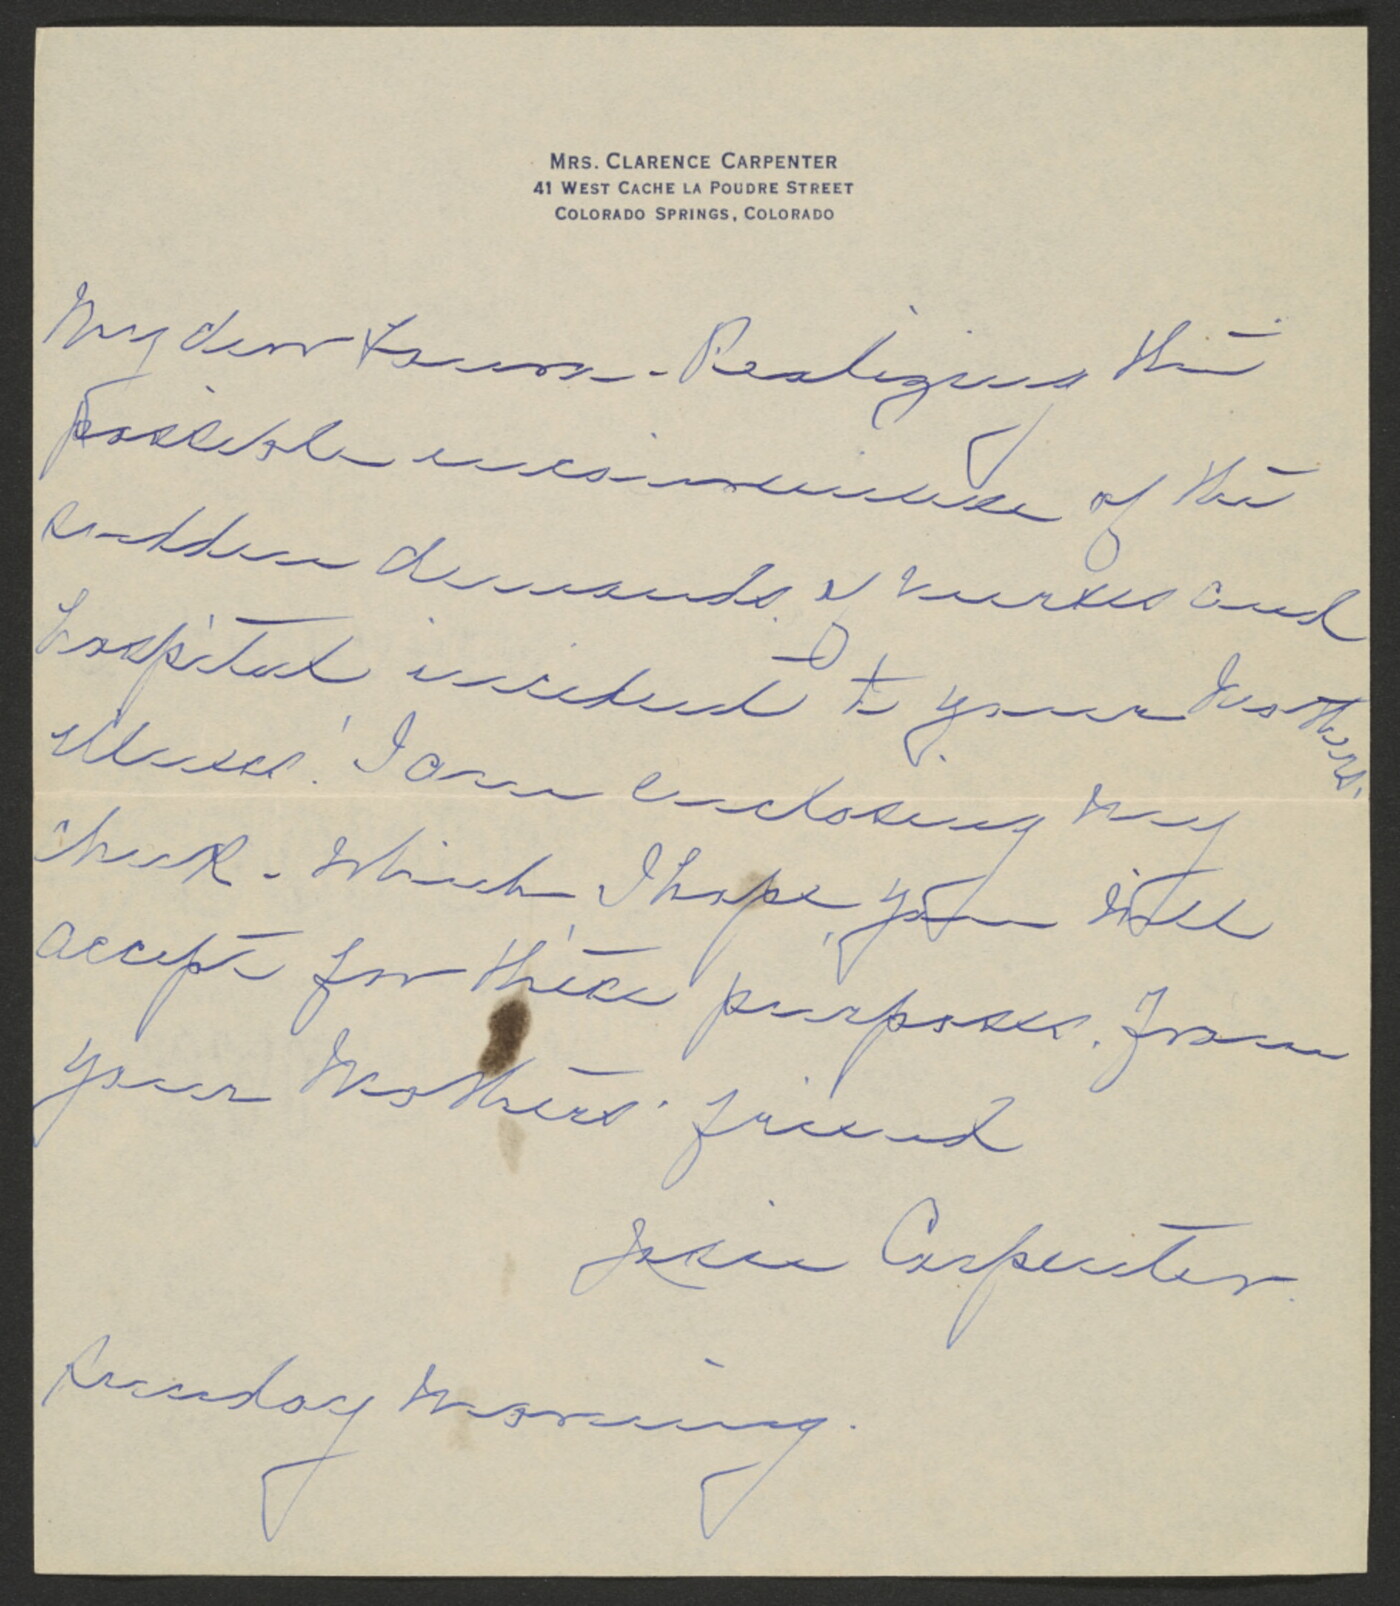 MRS. CLARENCE CARPENTER
41 WEST CACHE LA POUDRE STREET
COLORADO SPRINGS, COLORADO
My dear Laura - Realizing the
possible inconvenience of the
sudden demands of nurses and
hospital incident to your Mothers
illness! I am enclosing my
check - which I hope you will
accept for these purposes. From
your Mothers' friend
Josie Carpenter.
Sunday Morning.